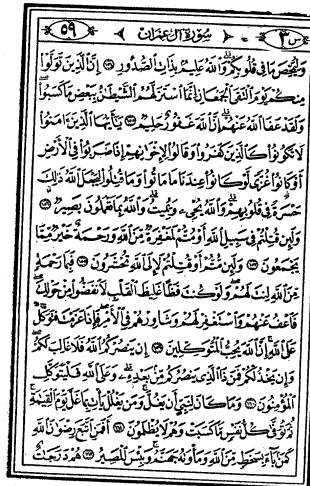 س ٣ سُورَةُ آلِ عِمْرَان ٥٩
وَلِيُمَحِّصَ مَا فِي قُلُوبِكُمْ وَاللّٰهُ عَلِيمٌ بِذَاتِ الصُّدُورِ اِنَّ الَّذِينَ تَوَلَّوْا
مِنْكُمْ يَوْمَ الْتَقَى الْجَمْعَانِ اِنَّمَا اسْتَزَلَّهُمُ الشَّيْطَانُ بِبَعْضِ مَا كَسَبُوا
وَلَقَدْ عَفَا اللّٰهُ عَنْهُمْ اِنَّ اللّٰهَ غَفُورٌ حَلِيمٌ يَآ اَيُّهَا الَّذِينَ اٰمَنُوا
لَا تَكُونُوا كَالَّذِينَ كَفَرُوا وَقَالُوا لِاِخْوَانِهِمْ اِذَا ضَرَبُوا فِي الْاَرْضِ
اَوْ كَانُوا غُزًّى لَوْ كَانُوا عِنْدَنَا مَا مَاتُوا وَمَا قُتِلُوا لِيَجْعَلَ اللّٰهُ ذٰلِكَ
حَسْرَةً فِي قُلُوبِهِمْ وَاللّٰهُ يُحْيِي وَيُمِيتُ وَاللّٰهُ بِمَا تَعْمَلُونَ بَصِيرٌ
وَلَئِنْ قُتِلْتُمْ فِي سَبِيلِ اللّٰهِ اَوْ مُتُّمْ لَمَغْفِرَةٌ مِنَ اللّٰهِ وَرَحْمَةٌ خَيْرٌ مِمَّا
يَجْمَعُونَ وَلَئِنْ مُتُّمْ اَوْ قُتِلْتُمْ لَاِلَى اللّٰهِ تُحْشَرُونَ فَبِمَا رَحْمَةٍ
مِنَ اللّٰهِ لِنْتَ لَهُمْ وَلَوْ كُنْتَ فَظًّا غَلِيظَ الْقَلْبِ لَانْفَضُّوا مِنْ حَوْلِكَ
فَاعْفُ عَنْهُمْ وَاسْتَغْفِرْ لَهُمْ وَشَاوِرْهُمْ فِي الْاَمْرِ فَاِذَا عَزَمْتَ فَتَوَكَّلْ
عَلَى اللّٰهِ اِنَّ اللّٰهَ يُحِبُّ الْمُتَوَكِّلِينَ اِنْ يَنْصُرْكُمُ اللّٰهُ فَلَا غَالِبَ لَكُمْ
وَاِنْ يَخْذُلْكُمْ فَمَنْ ذَا الَّذِي يَنْصُرُكُمْ مِنْ بَعْدِهِ وَعَلَى اللّٰهِ فَلْيَتَوَكَّلِ
الْمُؤْمِنُونَ وَمَا كَانَ لِنَبِيٍّ اَنْ يَغُلَّ وَمَنْ يَغْلُلْ يَأْتِ بِمَا غَلَّ يَوْمَ الْقِيٰمَةِ
ثُمَّ تُوَفّٰى كُلُّ نَفْسٍ مَا كَسَبَتْ وَهُمْ لَا يُظْلَمُونَ اَفَمَنِ اتَّبَعَ رِضْوَانَ اللّٰهِ
كَمَنْ بَآءَ بِسَخَطٍ مِنَ اللّٰهِ وَمَأْوٰيهُ جَهَنَّمُ وَبِئْسَ الْمَصِيرُ هُمْ دَرَجَاتٌ